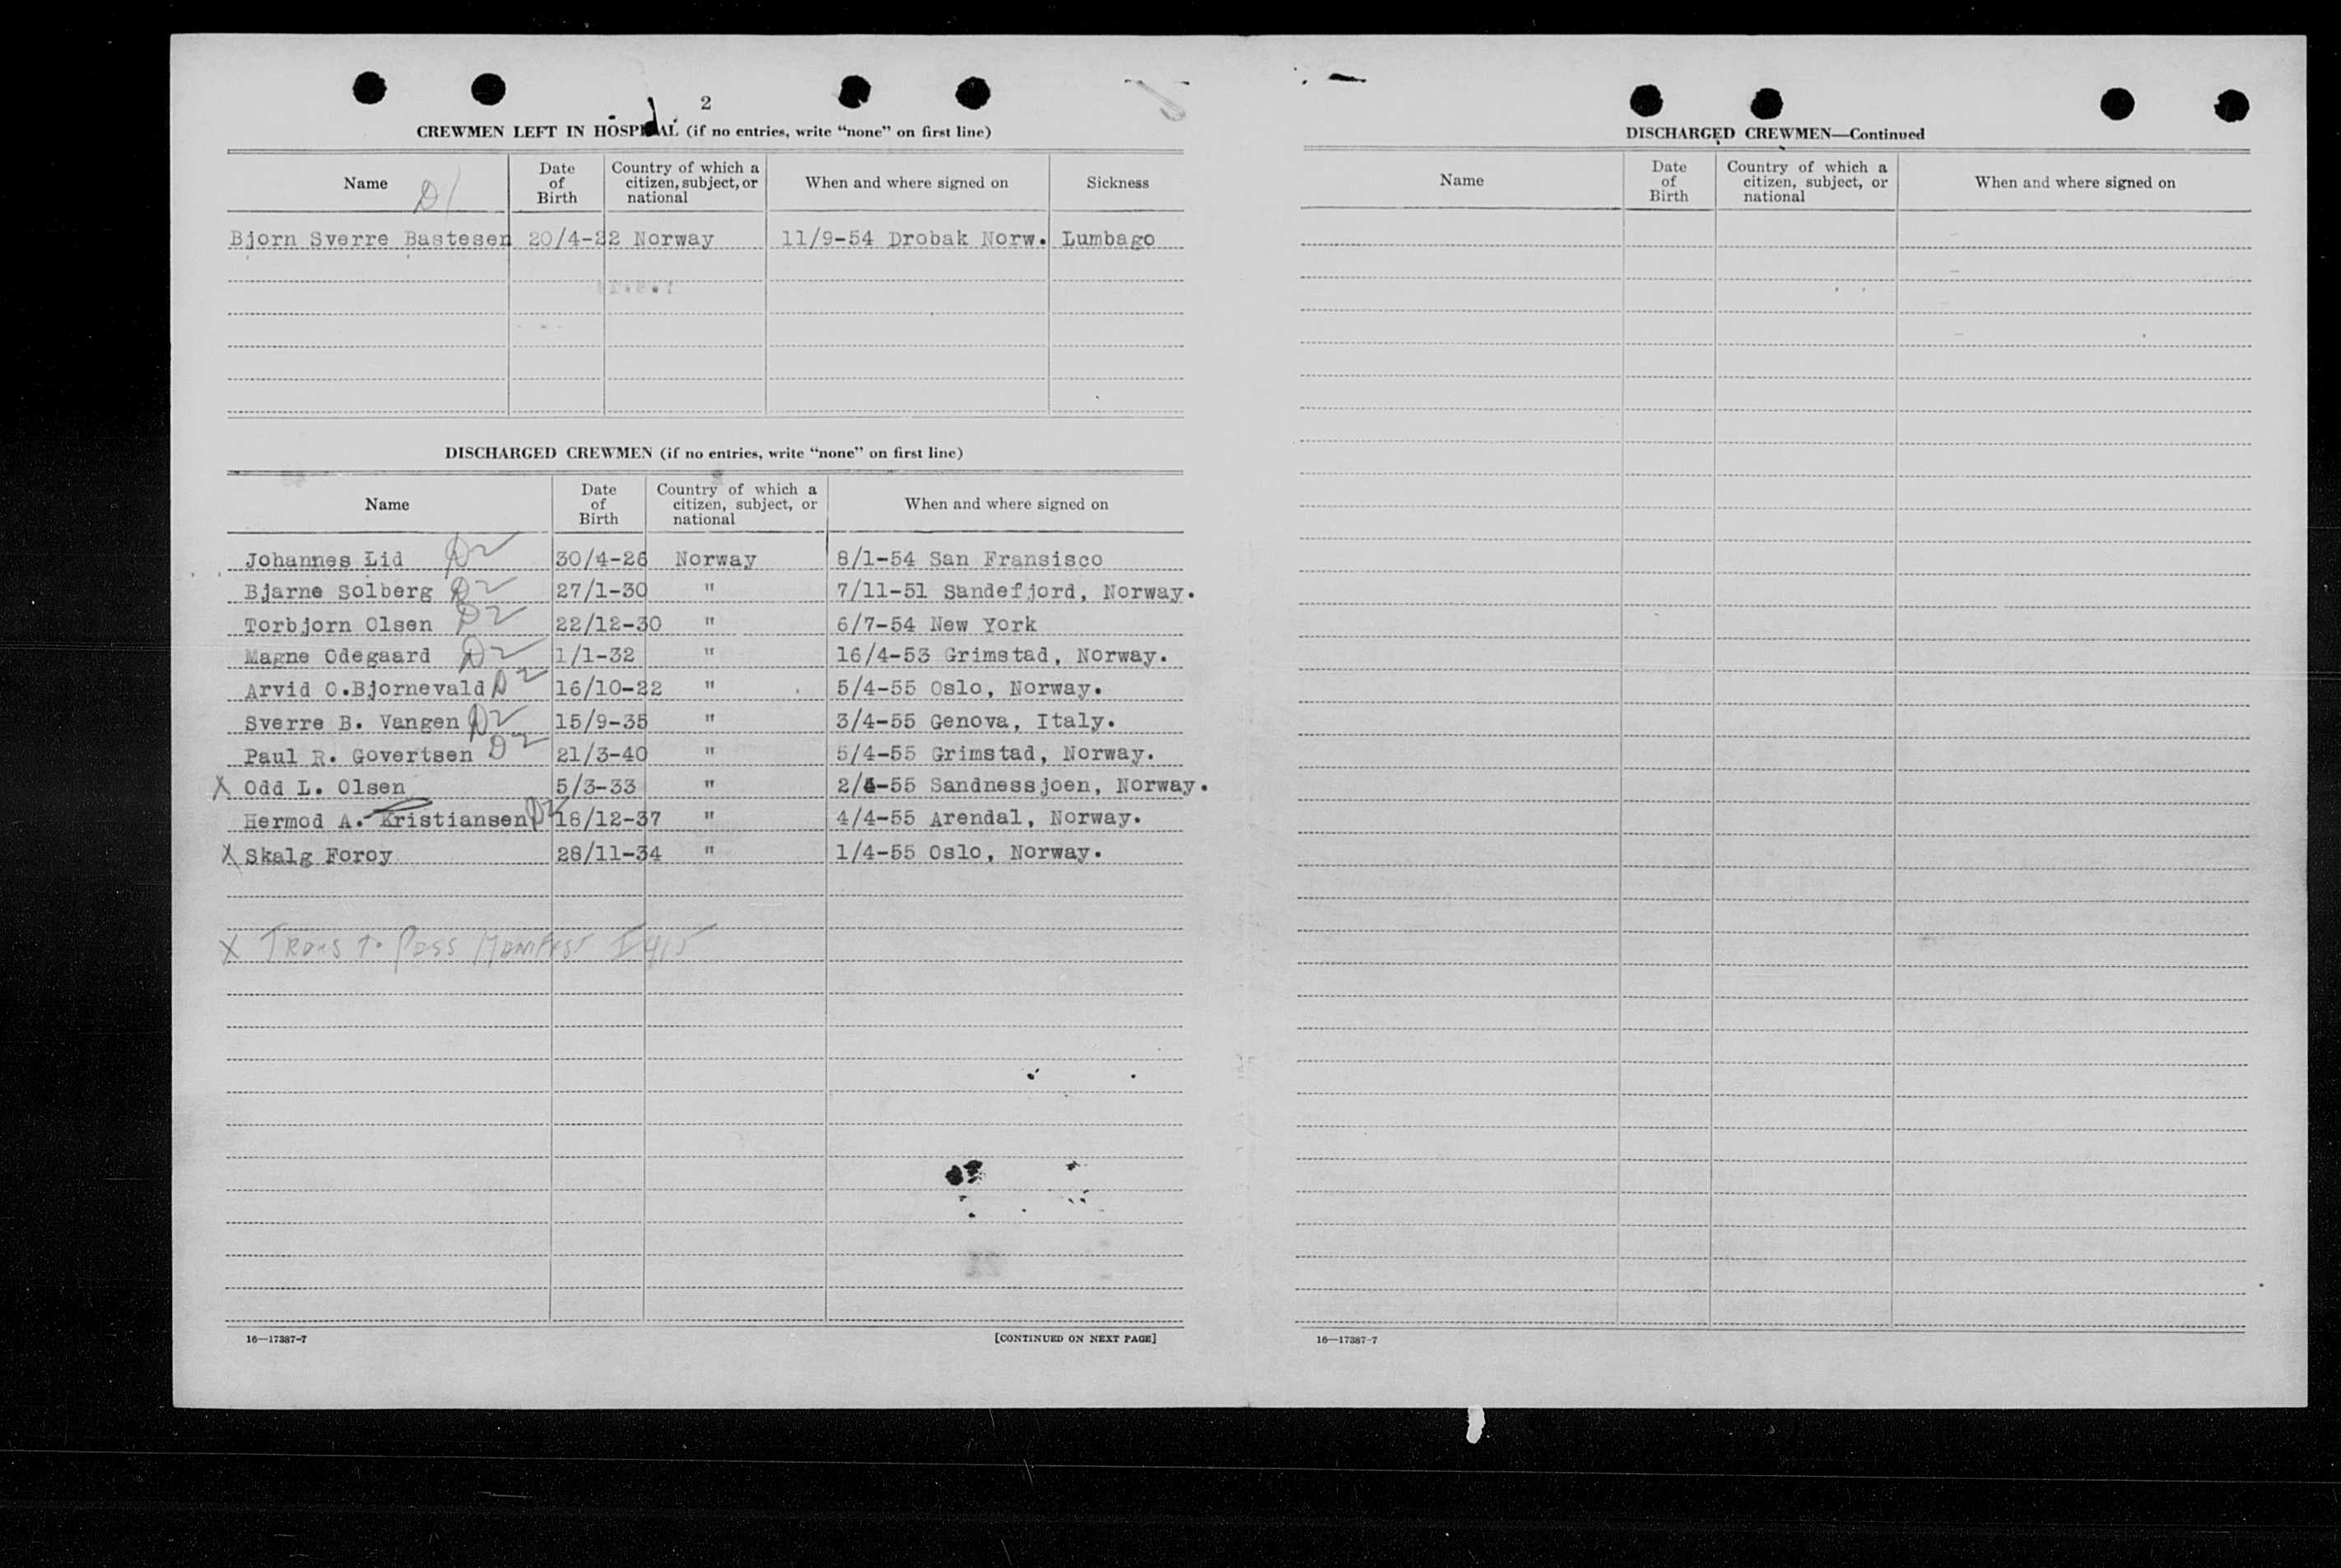 2
CREWMEN LEFT IN HOSPITAL (if no entries, write “none” on first line)
Name D1 Date of Birth Country of which a citizen, subject, or national When and where signed on Sickness
Bjorn Sverre Bastesen 20/4-22 Norway 11/9-54 Drobak Norw. Lumbago
DISCHARGED CREWMEN (if no entries, write “none” on first line)
Name Date of Birth Country of which a citizen, subject, or national When and where signed on
Johannes Lid D2 30/4-26 Norway 8/1-54 San Fransisco
Bjarne Solberg D2 27/1-30 " 7/11-51 Sandefjord, Norway.
Torbjorn Olsen D2 22/12-30 " 6/7-54 New York
Magne Odegaard D2 1/1-32 " 16/4-53 Grimstad, Norway.
Arvid O.Bjornevald D2 16/10-22 " 5/4-55 Oslo, Norway.
Sverre B. Vangen D2 15/9-35 " 3/4-55 Genova, Italy.
Paul R. Govertsen D2 21/3-40 " 5/4-55 Grimstad, Norway.
X Odd L. Olsen 5/3-33 " 2/4-55 Sandnessjoen, Norway.
Hermod A. Kristiansen D2 18/12-37 " 4/4-55 Arendal, Norway.
X Skalg Foroy 28/11-34 " 1/4-55 Oslo, Norway.
X Trans to Pass Manifest I 415
16—17387-7 [CONTINUED ON NEXT PAGE]
DISCHARGED CREWMEN—Continued
Name Date of Birth Country of which a citizen, subject, or national When and where signed on
16—17387-7